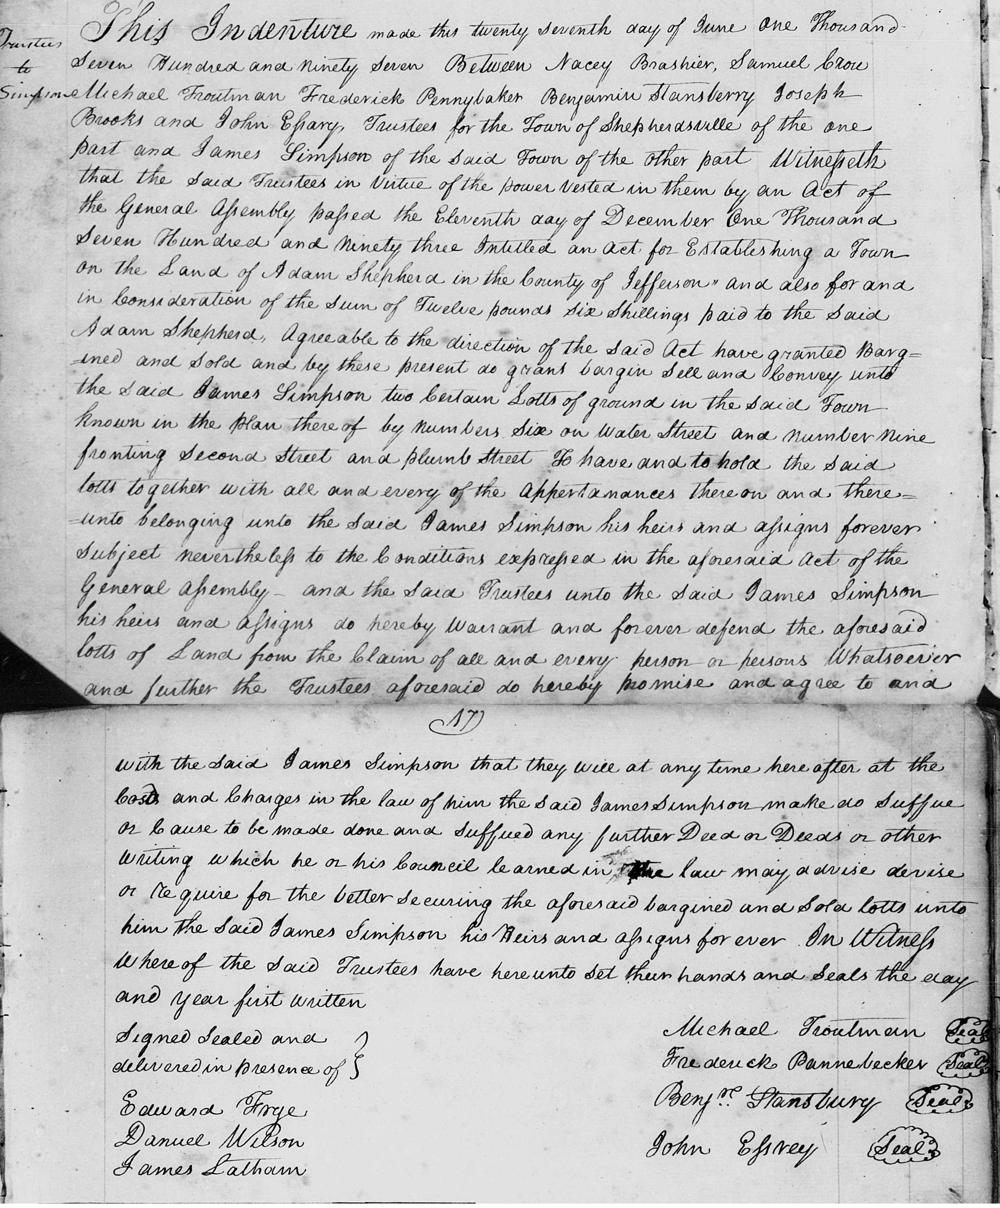 Trustees
to
Simpson
This Indenture made this twenty seventh day of June One Thousand
Seven Hundred and Ninety Seven Between Nacey Brashier, Samuel Crow
Michael Troutman Frederick Pennybaker Benjamin Stansberry Joseph
Brooks and John Essary, Trustees for the Town of Shepherdsville of the one
part and James Simpson of the said Town of the other part Witnesseth
that the said Trustees in Virtue of the power vested in them by an Act of
the General Assembly passed the Eleventh day of December One Thousand
Seven Hundred and Ninety three Intitled an Act for Establishing a Town
on the Land of Adam Shepherd in the County of Jefferson" and also for and
in Consideration of the Sum of Twelve pounds Six Shillings paid to the said
Adam Shepherd, Agreeable to the direction of the said Act have granted Barg=
=ined and Sold and by these present do grant bargin Sell and Convey unto
the said James Simpson two Certain Lotts of ground in the said Town
known in the plan there of by numbers Six on Water Street and number Nine
fronting Second Street and plumb Street To have and to hold the said
lotts together with all and every of the Appertanances there on and there=
=unto belonging unto the said James Simpson his heirs and assigns forever
Subject nevertheless to the Conditions expressed in the aforesaid Act of the
General Assembly - and the said Trustees unto the said James Simpson
his heirs and assigns do hereby Warrant and forever defend the aforesaid
lotts of Land from the Claim of all and every person or persons Whatsoever
and further the Trustees aforesaid do hereby promise and agree to and
17
with the said James Simpson that they will at any time here after at the
Costs and Charges in the law of him the said James Simpson make do Suffue
or Cause to be made done and Suffued any further Deed or Deeds or other
Writing which he or his Council learned in the law may advise devise
or require for the better Securing the aforesaid bargined and Sold lotts unto
him the said James Simpson his Heirs and assigns for ever In Witness
Where of the said Trustees have here unto set their hands and Seals the day
and year first written
Signed Sealed and
delivered in presence of }
Edward Frye
Danuel Wilson
James Latham
Michael Troutman Seal
Frederick Pannebecker Seal
Benjn. Stansbury Seal
John Essrey Seal